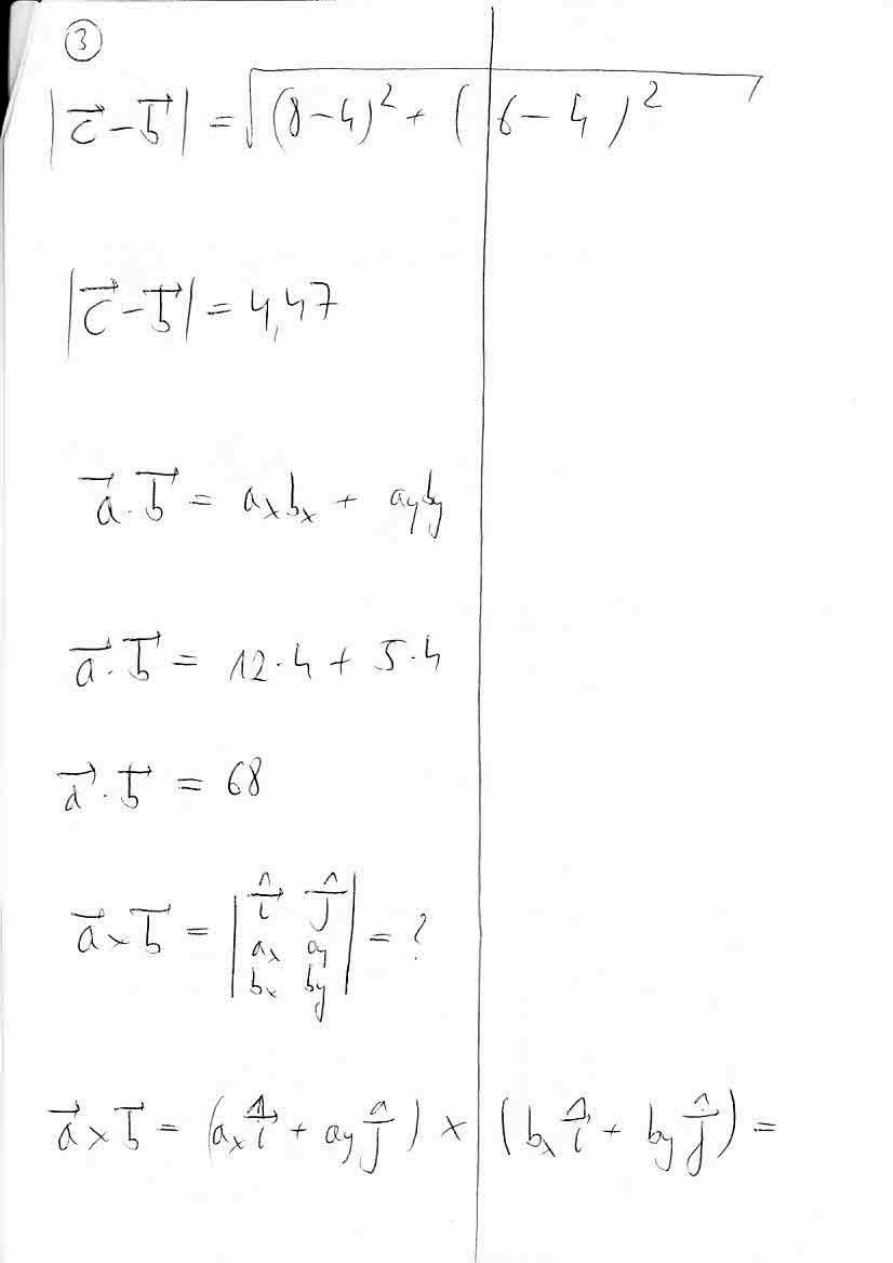 3
|c⃗ − b⃗| = √((8−4)² + (6−4)²)
|c⃗ − b⃗| = 4,47
a⃗ · b⃗ = aₓbₓ + a_y b_y
a⃗ · b⃗ = 12·4 + 5·4
a⃗ · b⃗ = 68
a⃗ × b⃗ = | î ĵ | = ?
| aₓ a_y |
| bₓ b_y |
a⃗ × b⃗ = (aₓ î + a_y ĵ) × (bₓ î + b_y ĵ) =